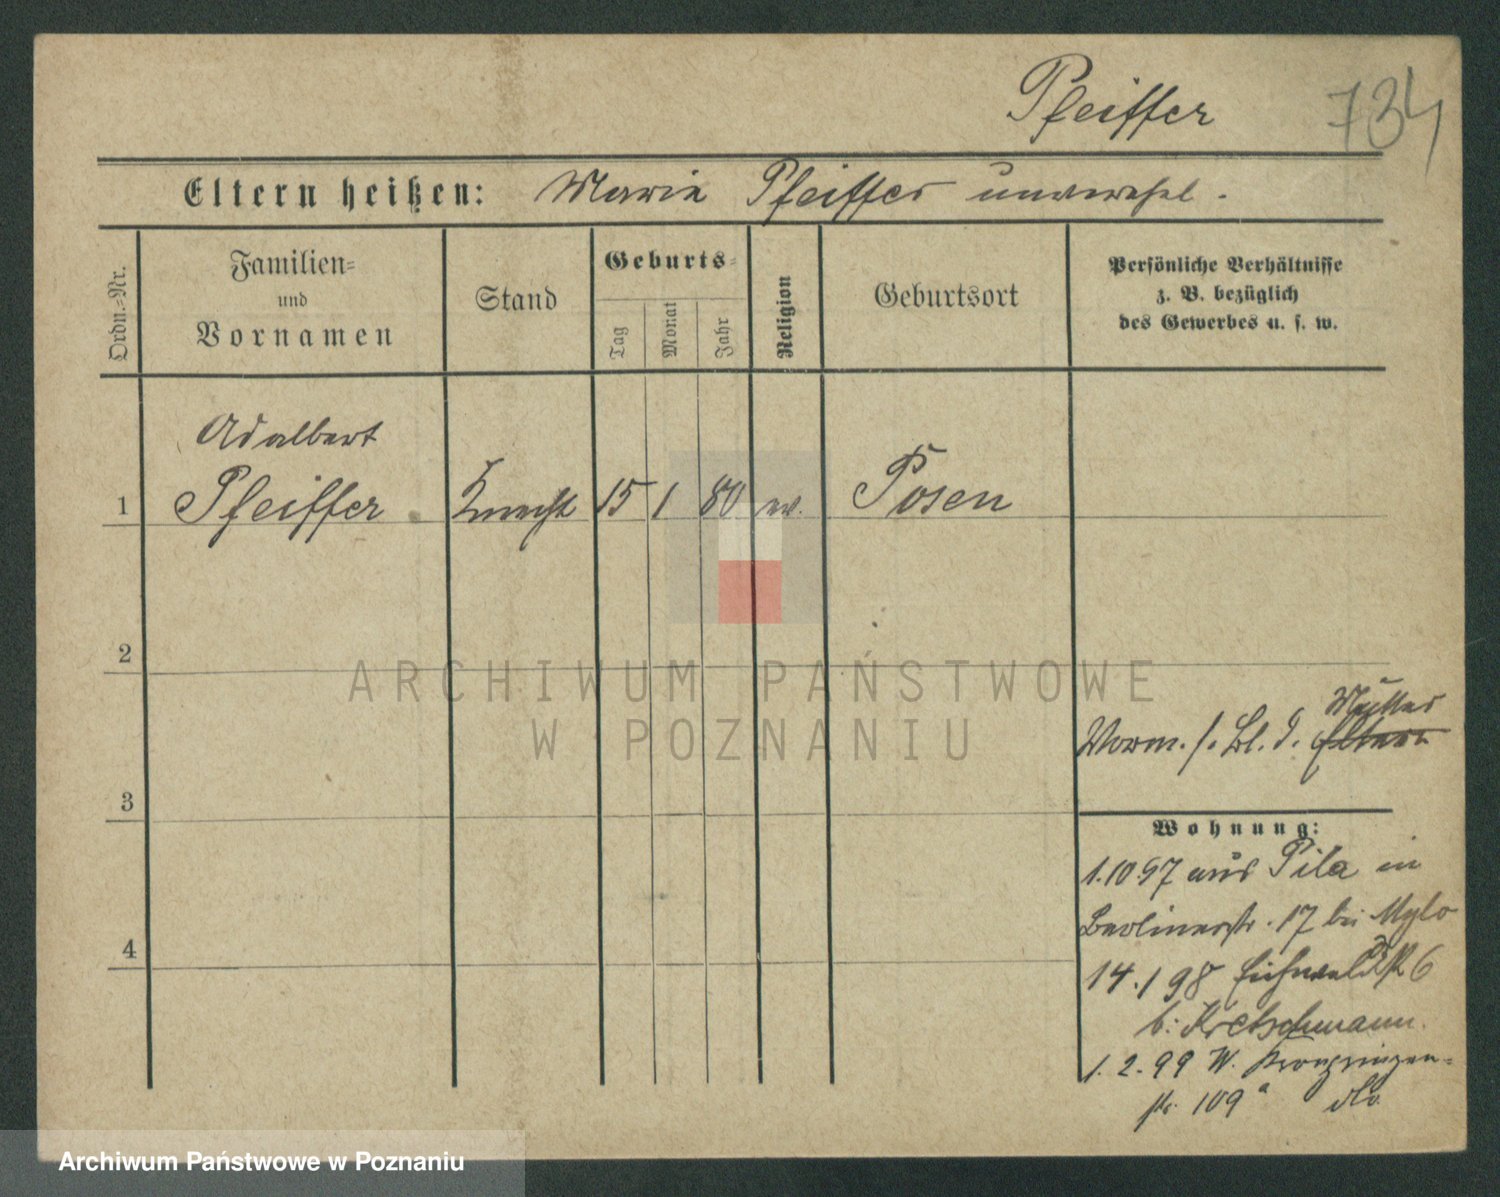 Pfeiffer 734
Eltern heißen: Maria Pfeiffer unverehel.
Ordn.=Nr.
Familien=
und
Vornamen
Stand
Geburts=
Tag
Monat
Jahr
Religion
Geburtsort
Persönliche Verhältnisse
z. B. bezüglich
des Gewerbes u. s. w.
Adalbert
1 Pfeiffer Knecht 15 1 80 ev. Posen
2
Mutter
Vorm. s. Bl. d. Eltern
3
Wohnung:
1.10 97 aus Pila in
Berlinerstr. 17 bei Mylo
4
14.1 98 Eichwaldstr 6
b. Kretschmann.
1.2.99 W. Kronprinzen=
str. 109a dto.
ARCHIWUM PAŃSTWOWE
W POZNANIU
Archiwum Państwowe w Poznaniu